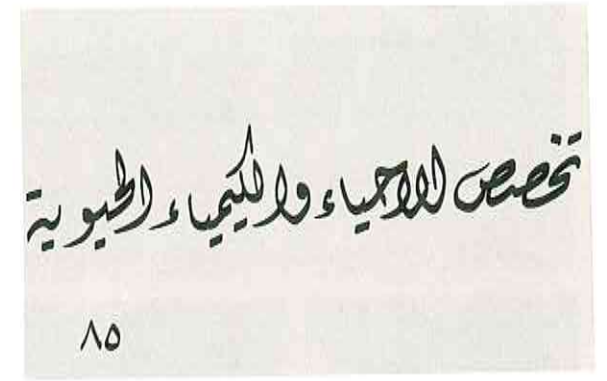 تخصص الاحياء والكيمياء الحيوية
٨٥